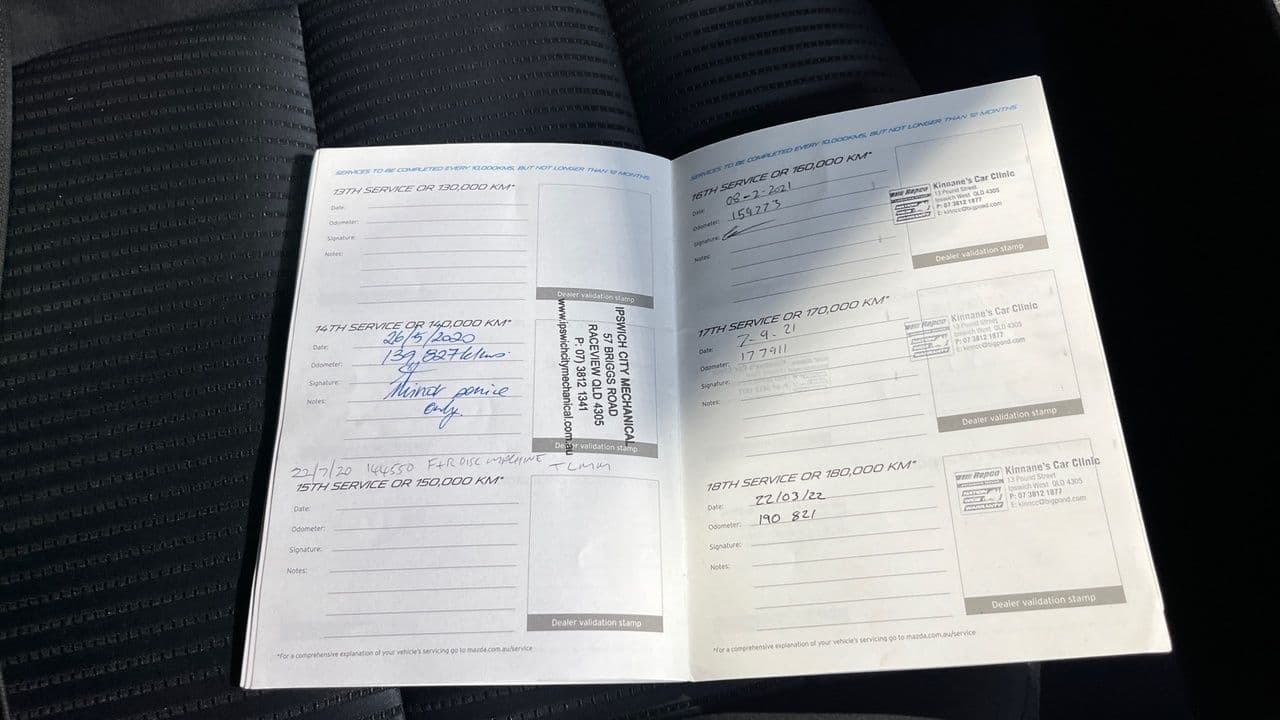 SERVICES TO BE COMPLETED EVERY 10,000KMS, BUT NOT LONGER THAN 12 MONTHS.
13TH SERVICE OR 130,000 KM*
Date:
Odometer:
Signature:
Notes:
Dealer validation stamp
14TH SERVICE OR 140,000 KM*
Date: 26/5/2020
Odometer: 139,827klms.
Signature:
Notes: Minor
only.
IPSWICH CITY MECHANICAL
57 BRIGGS ROAD
RACEVIEW QLD 4305
P: 07) 3812 1341
www.ipswichcitymechanical.com.au
Dealer validation stamp
22/7/20 144550 F+R DISC MACHINE TLMM
15TH SERVICE OR 150,000 KM*
Date:
Odometer:
Signature:
Notes:
Dealer validation stamp
*For a comprehensive explanation of your vehicle's servicing go to mazda.com.au/service
SERVICES TO BE COMPLETED EVERY 10,000KMS, BUT NOT LONGER THAN 12 MONTHS.
16TH SERVICE OR 160,000 KM*
Date: 08-2-2021
Odometer: 159273
Signature:
Notes:
Repco
Kinnane's Car Clinic
13 Pound Street
Ipswich West QLD 4305
P: 07 3812 1877
E: kinncc@bigpond.com
Dealer validation stamp
17TH SERVICE OR 170,000 KM*
Date: 7-9-21
Odometer: 177911
Signature:
Notes:
Repco
Kinnane's Car Clinic
13 Pound Street
Ipswich West QLD 4305
P: 07 3812 1877
E: kinncc@bigpond.com
Dealer validation stamp
18TH SERVICE OR 180,000 KM*
Date: 22/03/22
Odometer: 190 821
Signature:
Notes:
Repco
WARRANTY
Kinnane's Car Clinic
13 Pound Street
Ipswich West QLD 4305
P: 07 3812 1877
E: kinncc@bigpond.com
Dealer validation stamp
*For a comprehensive explanation of your vehicle's servicing go to mazda.com.au/service